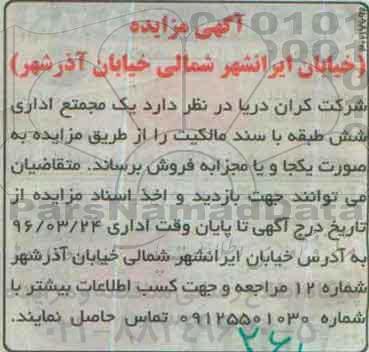 آگهی مزایده
(خیابان ایرانشهر شمالی خیابان آذرشهر)
شرکت کران دریا در نظر دارد یک مجتمع اداری
شش طبقه با سند مالکیت را از طریق مزایده به
صورت یکجا و یا مجزابه فروش برساند. متقاضیان
می توانند جهت بازدید و اخذ اسناد مزایده از
تاریخ درج آگهی تا پایان وقت اداری ۹۶/۰۳/۲۴
به آدرس خیابان ایرانشهر شمالی خیابان آذرشهر
شماره ۱۲ مراجعه و جهت کسب اطلاعات بیشتر با
شماره ۰۹۱۲۵۵۰۱۰۳۰ تماس حاصل نمایند.
ParsNamadData